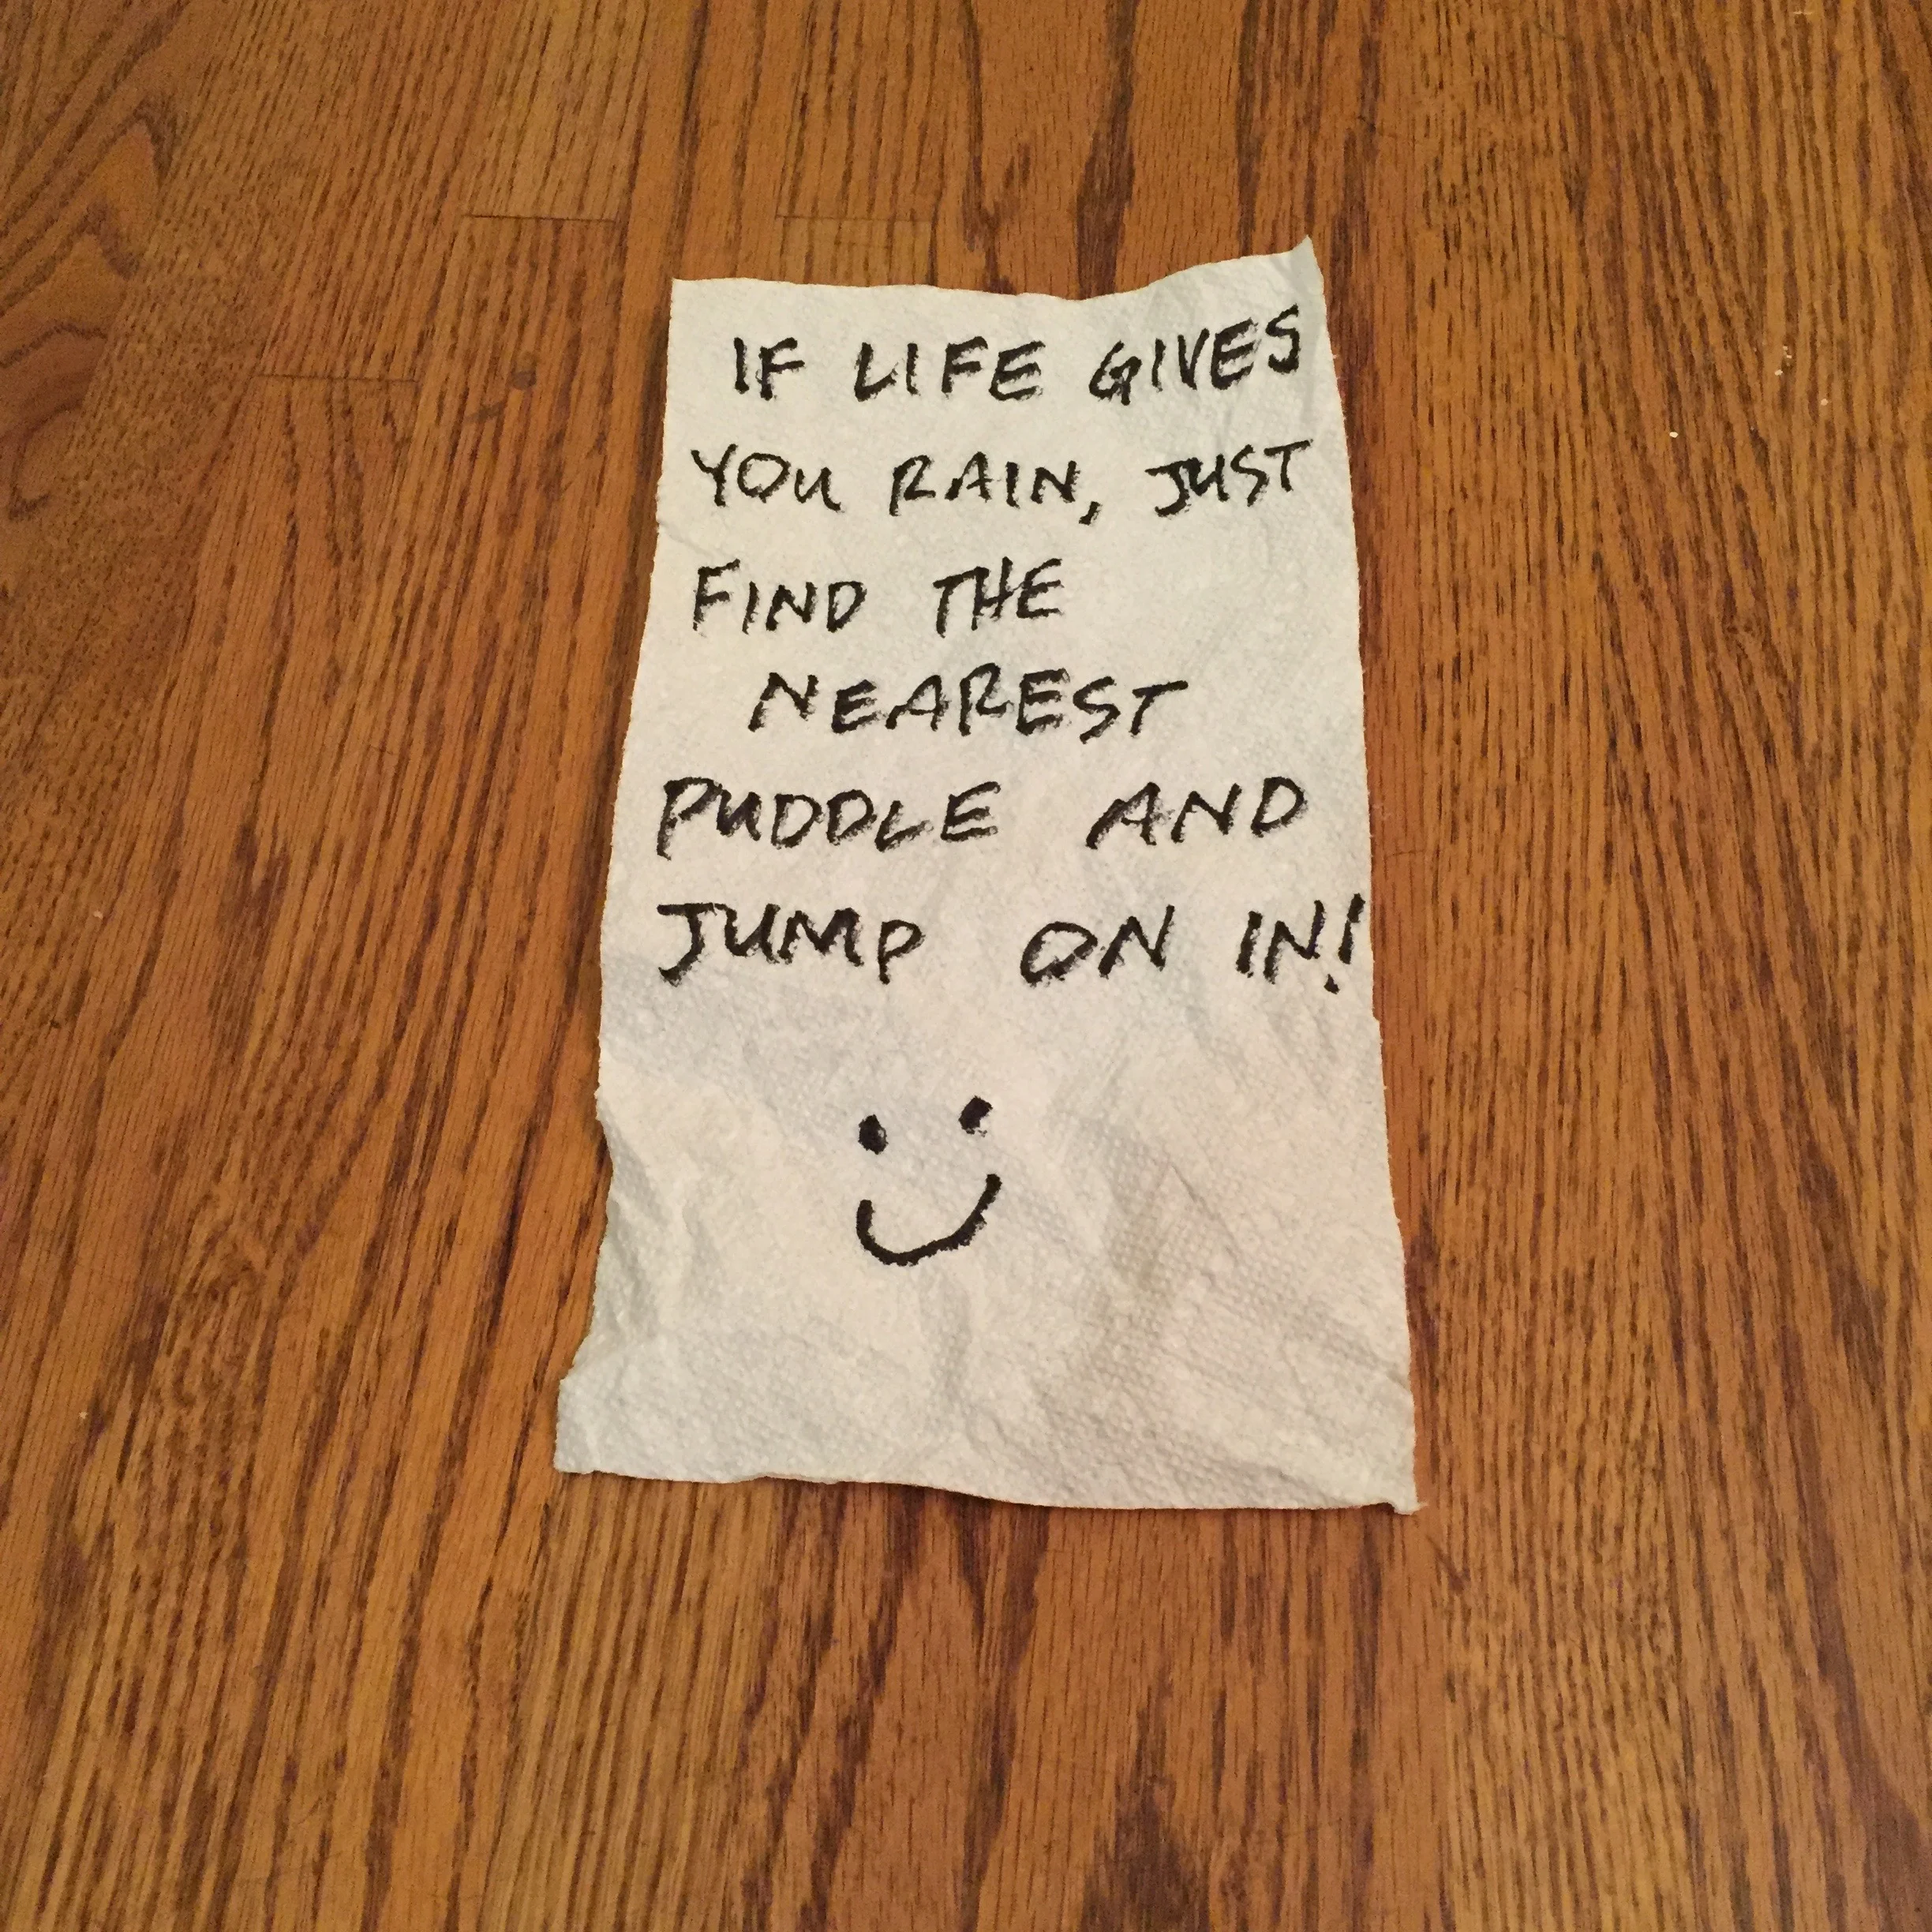 IF LIFE GIVES
YOU RAIN, JUST
FIND THE
NEAREST
PUDDLE AND
JUMP ON IN!